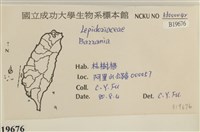 國立成功大學生物系標本館
NCKU NO
B19676
Lepidoziaceae
Bazzania
Hab. 枯樹樁
Loc. 阿里山
Coll. C-Y. Fu
Date 80.8.4 Det. C-Y. Fu
19676